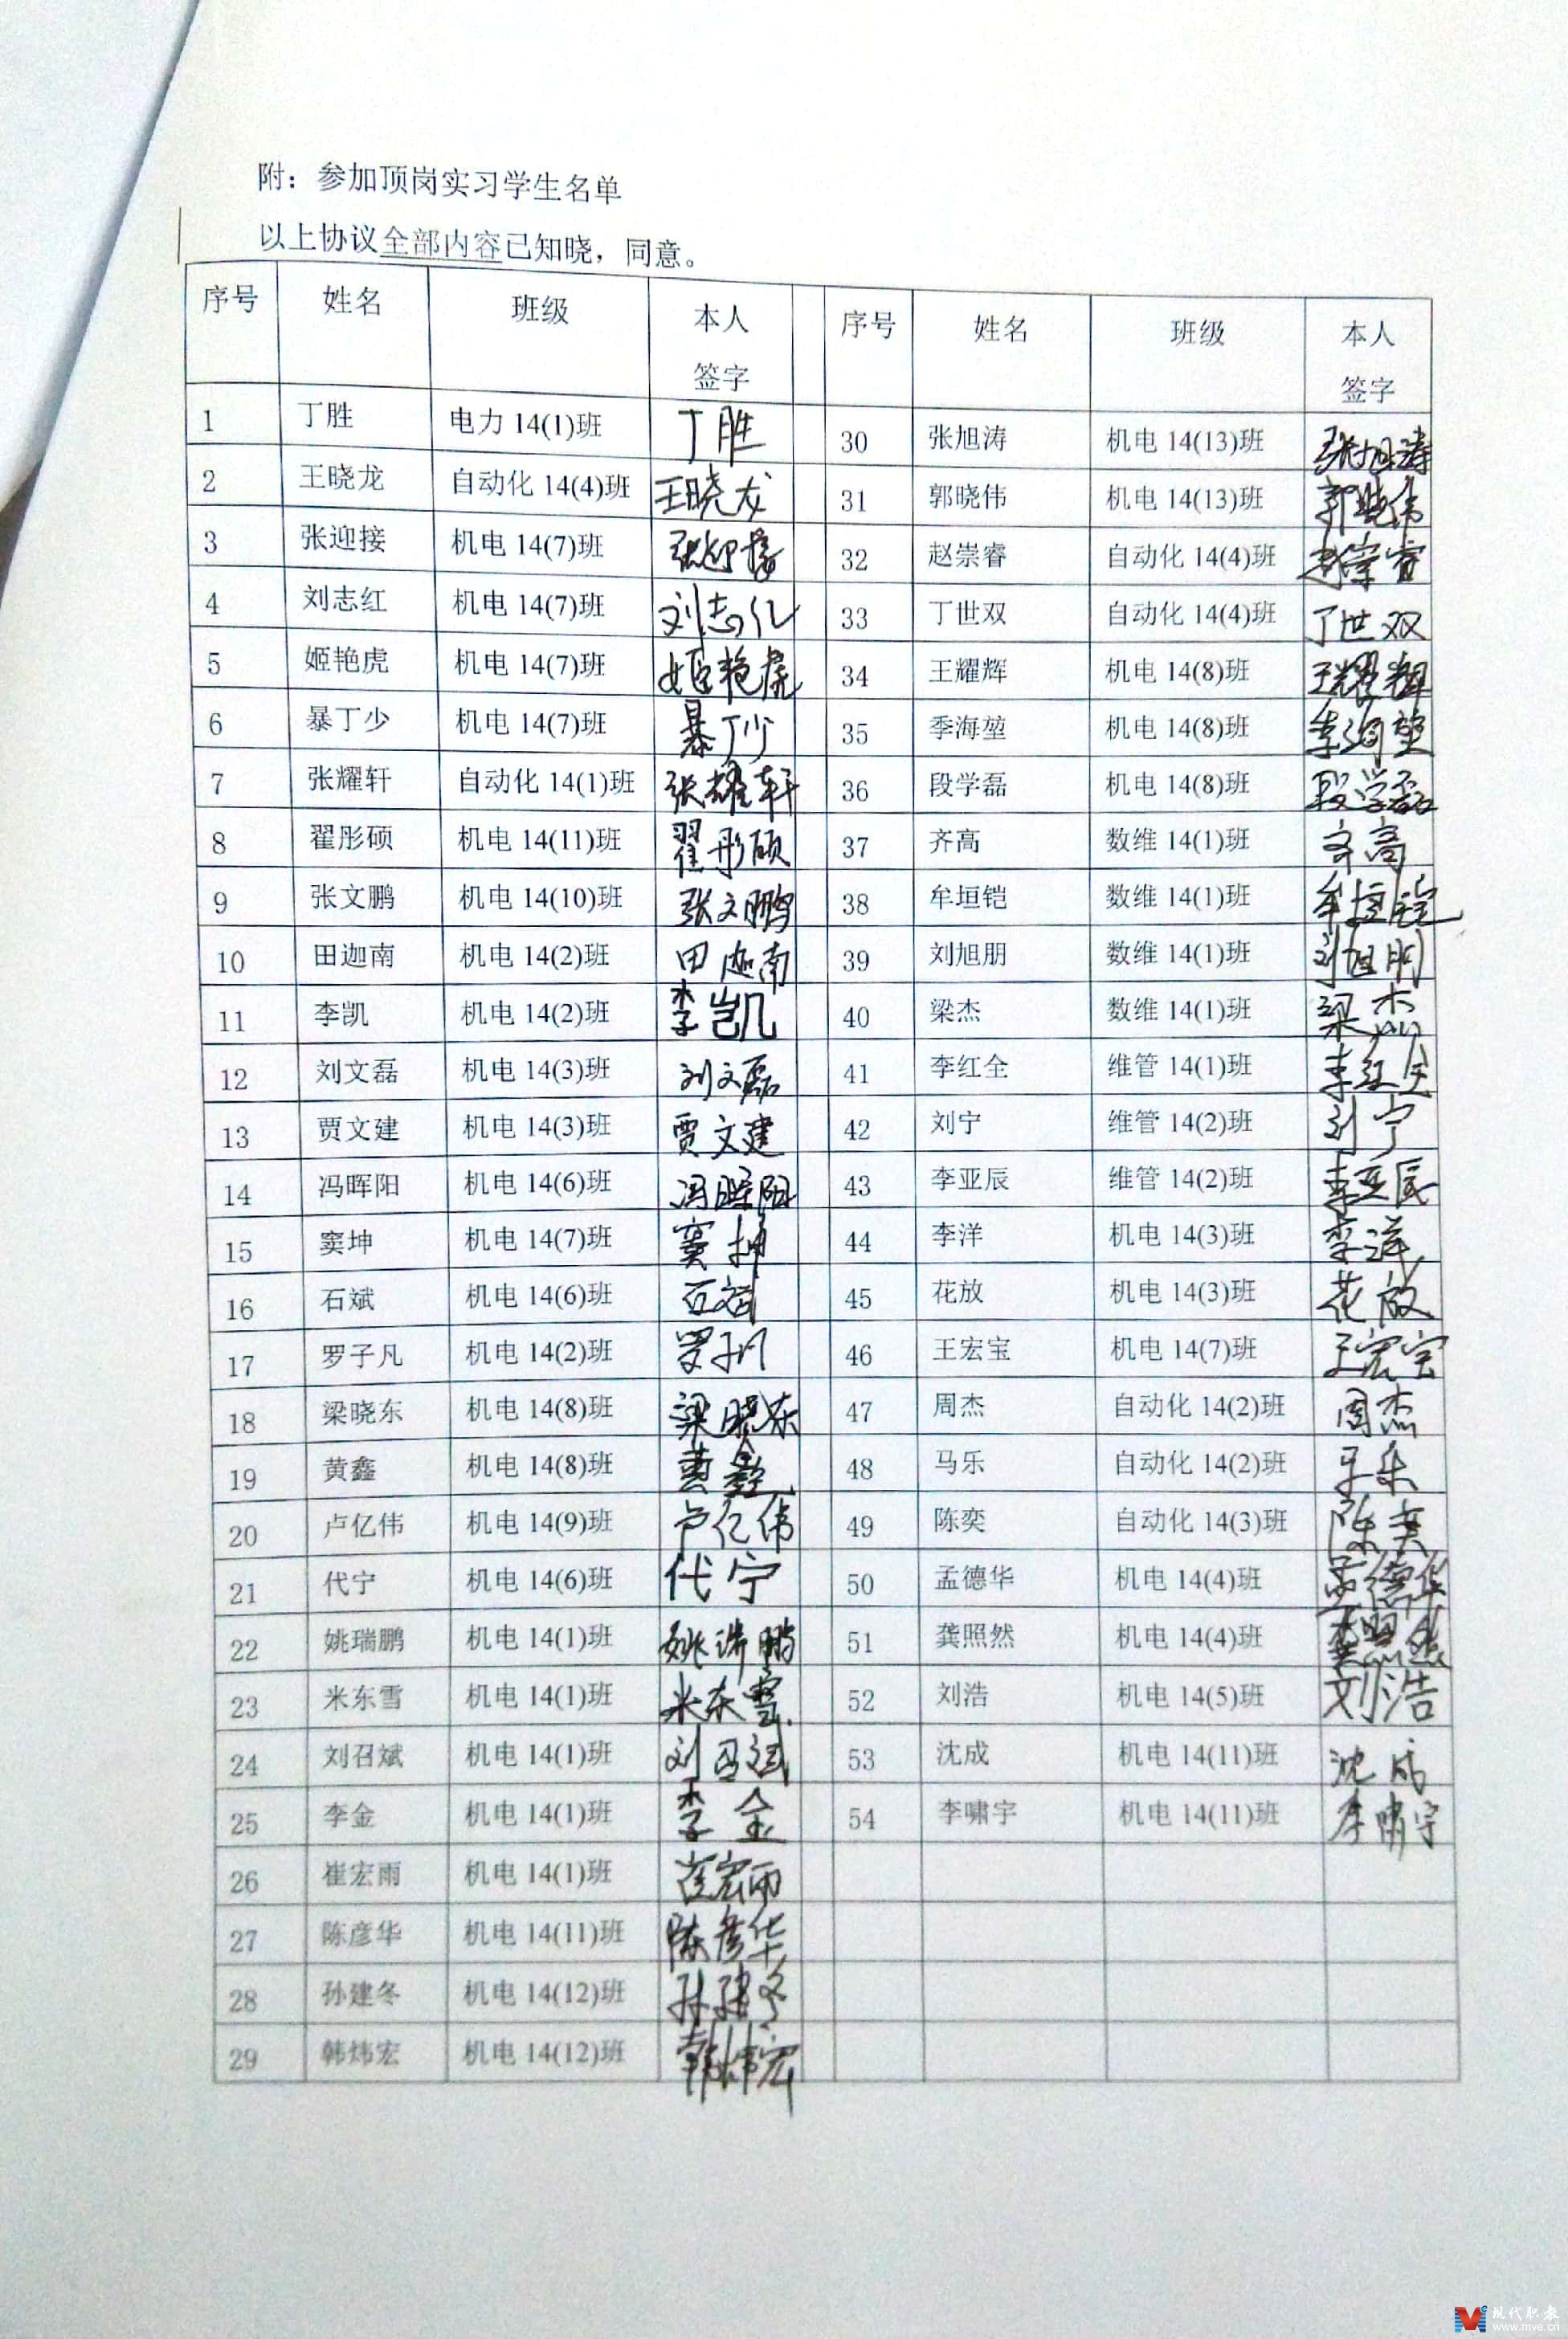 附：参加顶岗实习学生名单
以上协议全部内容已知晓，同意。
序号 姓名 班级 本人签字 序号 姓名 班级 本人签字
1 丁胜 电力 14(1)班 丁胜 30 张旭涛 机电 14(13)班 张旭涛
2 王晓龙 自动化 14(4)班 王晓龙 31 郭晓伟 机电 14(13)班 郭晓伟
3 张迎接 机电 14(7)班 张迎接 32 赵崇睿 自动化 14(4)班 赵崇睿
4 刘志红 机电 14(7)班 刘志红 33 丁世双 自动化 14(4)班 丁世双
5 姬艳虎 机电 14(7)班 姬艳虎 34 王耀辉 机电 14(8)班 王耀辉
6 暴丁少 机电 14(7)班 暴丁少 35 季海堃 机电 14(8)班 季海堃
7 张耀轩 自动化 14(1)班 张耀轩 36 段学磊 机电 14(8)班 段学磊
8 翟彤硕 机电 14(11)班 翟彤硕 37 齐高 数维 14(1)班 齐高
9 张文鹏 机电 14(10)班 张文鹏 38 牟垣铠 数维 14(1)班 牟垣铠
10 田迦南 机电 14(2)班 田迦南 39 刘旭朋 数维 14(1)班 刘旭朋
11 李凯 机电 14(2)班 李凯 40 梁杰 数维 14(1)班 梁杰
12 刘文磊 机电 14(3)班 刘文磊 41 李红全 维管 14(1)班 李红全
13 贾文建 机电 14(3)班 贾文建 42 刘宁 维管 14(2)班 刘宁
14 冯晖阳 机电 14(6)班 冯晖阳 43 李亚辰 维管 14(2)班 李亚辰
15 窦坤 机电 14(7)班 窦坤 44 李洋 机电 14(3)班 李洋
16 石斌 机电 14(6)班 石斌 45 花放 机电 14(3)班 花放
17 罗子凡 机电 14(2)班 罗子凡 46 王宏宝 机电 14(7)班 王宏宝
18 梁晓东 机电 14(8)班 梁晓东 47 周杰 自动化 14(2)班 周杰
19 黄鑫 机电 14(8)班 黄鑫 48 马乐 自动化 14(2)班 马乐
20 卢亿伟 机电 14(9)班 卢亿伟 49 陈奕 自动化 14(3)班 陈奕
21 代宁 机电 14(6)班 代宁 50 孟德华 机电 14(4)班 孟德华
22 姚瑞鹏 机电 14(1)班 姚瑞鹏 51 龚照然 机电 14(4)班 龚照然
23 米东雪 机电 14(1)班 米东雪 52 刘浩 机电 14(5)班 刘浩
24 刘召斌 机电 14(1)班 刘召斌 53 沈成 机电 14(11)班 沈成
25 李金 机电 14(1)班 李金 54 李啸宇 机电 14(11)班 李啸宇
26 崔宏雨 机电 14(1)班 崔宏雨
27 陈彦华 机电 14(11)班 陈彦华
28 孙建冬 机电 14(12)班 孙建冬
29 韩炜宏 机电 14(12)班 韩炜宏
现代职教
www.mve.cn